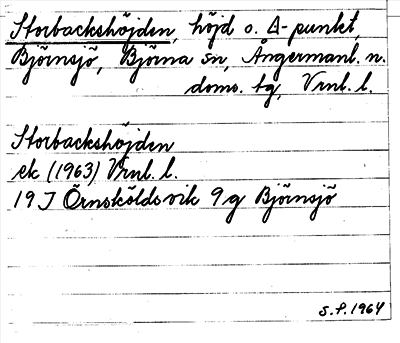 Storbackshöjden, höjd o. Δ-punkt
Björnsjö, Björna sn, Ångermanl. n.
doms. tg, Vrnl. l.
Storbackshöjden
ek (1963) Vrnl. l.
19 J Örnsköldsvik 9 g Björnsjö
S.P. 1964